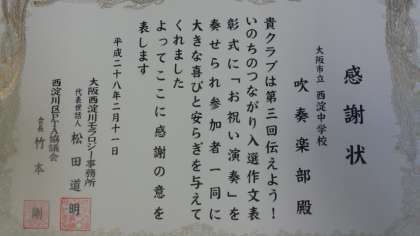 感謝状
大阪市立 西淀中学校
吹奏楽部殿
貴クラブは第三回伝えよう！
いのちのつながり入選作文表
彰式に「お祝い演奏」を
奏せられ参加者一同に
大きな喜びと安らぎを与えて
くれました
よってここに感謝の意を
表します
平成二十八年二月十一日
大阪西淀川モラロジー事務所
代表世話人 松田道明
西淀川区PTA協議会
会長 竹本剛